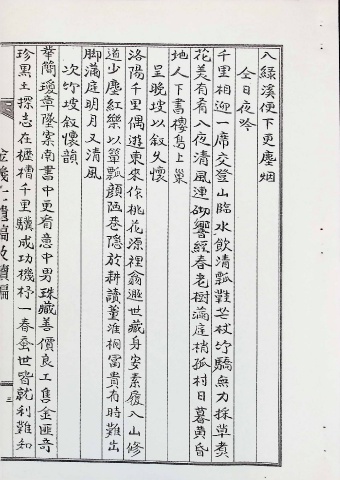 入綠溪便下更塵烟
仝日夜吟
千里相迎一席交登山臨水飲清瓢鞋芒杖竹驕無力採草煮
花美有肴入夜清風連砌響經春老樹滿庭梢孤村日暮黃昏
地人下書樓鳥上巢
呈晚坡以叙久懷
洛陽千里偶遊東來作桃花源裡翁避世藏身安素履入山修
道少塵紅樂以簞瓢顔陋巷隱於耕讀董淮桐富貴有時難出
脚滿庭明月又清風
次竹坡叙懷韻
華簡瓊章墜案南書中更看意中男珠藏善價良工售金匣奇
珍黑土探志在櫪槽千里驥成功機杼一春蚕世皆就利難知
遺稿
編
三